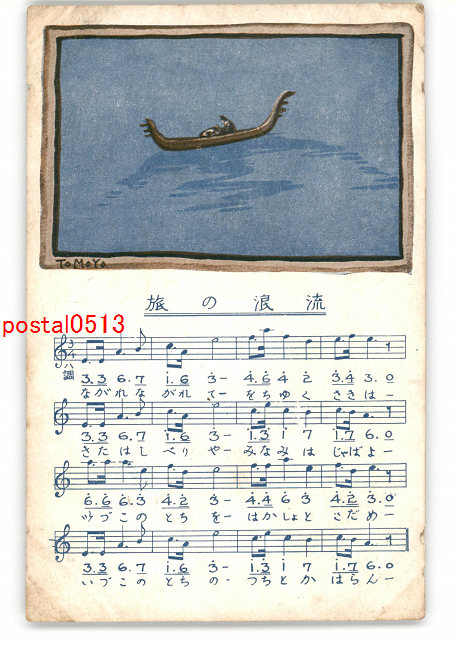 ToMoYo
旅の浪流
postal0513
3/4
ハ調
3.3 6.7 i.6 3- 4.6 4 2 3.4 3.0
ながれながれてーをちゆくさきはー
3.3 6.7 i.6 3- i.3 i 7 i.7 6.0
きたはしべりやーみなみはじゃばよー
6.6 6.3 4.2 3- 4.4 6 3 4.2 3.0
いづこのとちをーはかしょとさだめー
3.3 6.7 i.6 3- i.3 i 7 i.7 6.0
いづこのとちのーつちとかはらんー